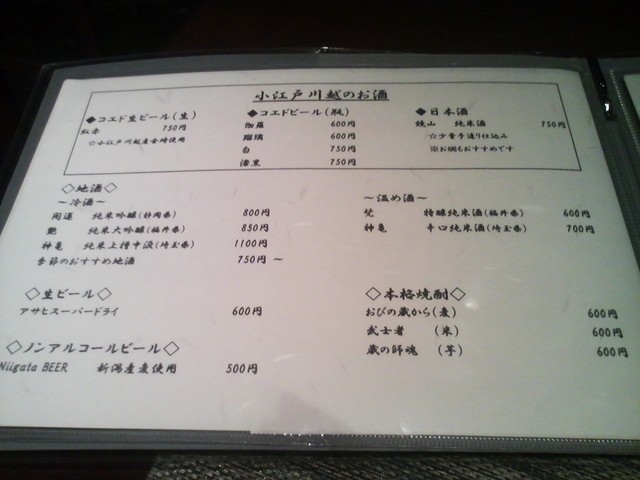 小江戸川越のお酒
◆コエド生ビール(生)
紅赤 750円
☆小江戸川越産金時使用
◆コエドビール(瓶)
伽羅 600円
瑠璃 600円
白 750円
漆黒 750円
◆日本酒
鏡山 純米酒 750円
☆少量手造り仕込み
※お燗もおすすめです
◇地酒◇
～冷酒～
開運 純米吟醸(静岡県) 800円
純米大吟醸(福井県) 850円
神亀 純米上槽中汲(埼玉県) 1100円
季節のおすすめ地酒 750円 ～
～温め酒～
梵 特醸純米酒(福井県) 600円
神亀 辛口純米酒(埼玉県) 700円
◇生ビール◇
アサヒスーパードライ 600円
◇ノンアルコールビール◇
Niigata BEER 新潟産麦使用 500円
◇本格焼酎◇
おびの蔵から(麦) 600円
武士者 (米) 600円
蔵の師魂 (芋) 600円